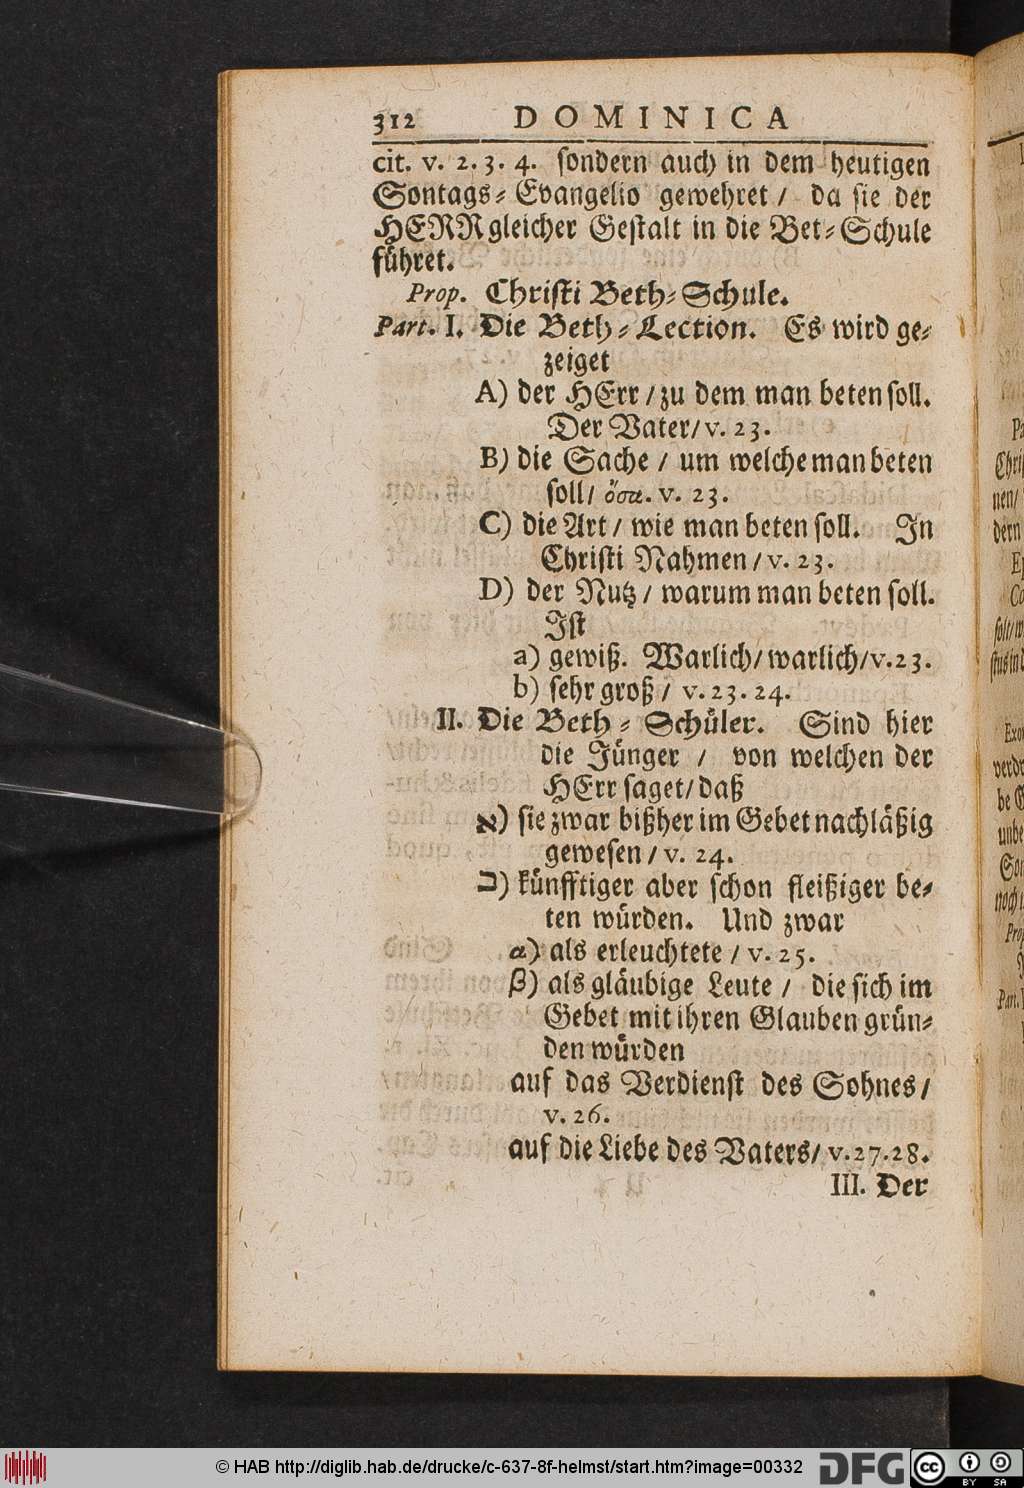 312 DOMINICA
cit. v. 2. 3. 4. sondern auch in dem heutigen
Sontags-Evangelio gewehret / da sie der
HERR gleicher Gestalt in die Bet-Schule
führet.
Prop. Christi Beth-Schule.
Part. I. Die Beth-Lection. Es wird ge-
zeiget
A) der HErr / zu dem man beten soll.
Der Vater / v. 23.
B) die Sache / um welche man beten
soll / ὅσα. v. 23.
C) die Art / wie man beten soll. In
Christi Nahmen / v. 23.
D) der Nutz / warum man beten soll.
Ist
a) gewiß. Warlich / warlich / v. 23.
b) sehr groß / v. 23. 24.
II. Die Beth-Schüler. Sind hier
die Jünger / von welchen der
HErr saget / daß
א) sie zwar bißher im Gebet nachläßig
gewesen / v. 24.
ב) künfftiger aber schon fleißiger be-
ten würden. Und zwar
α) als erleuchtete / v. 25.
β) als gläubige Leute / die sich im
Gebet mit ihren Glauben grün-
den würden
auf das Verdienst des Sohnes /
v. 26.
auf die Liebe des Vaters / v. 27. 28.
III. Der
© HAB http://diglib.hab.de/drucke/c-637-8f-helmst/start.htm?image=00332
DFG
cc BY SA